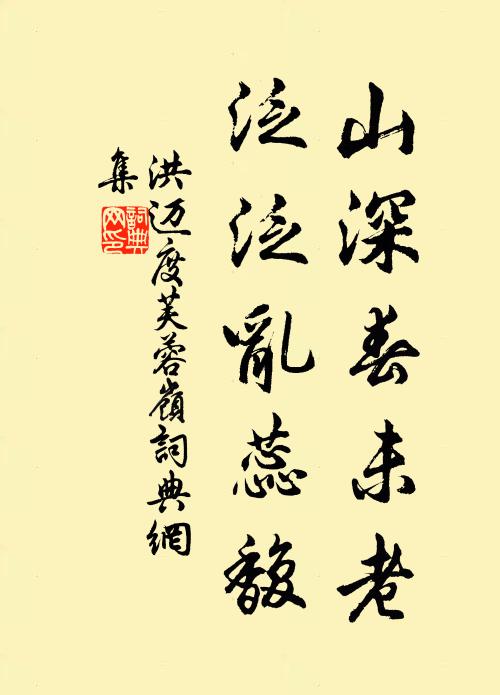 山深春未老
泛泛亂蕊馥
洪迈度芙蓉嶺詞典網
集
詞典
网印